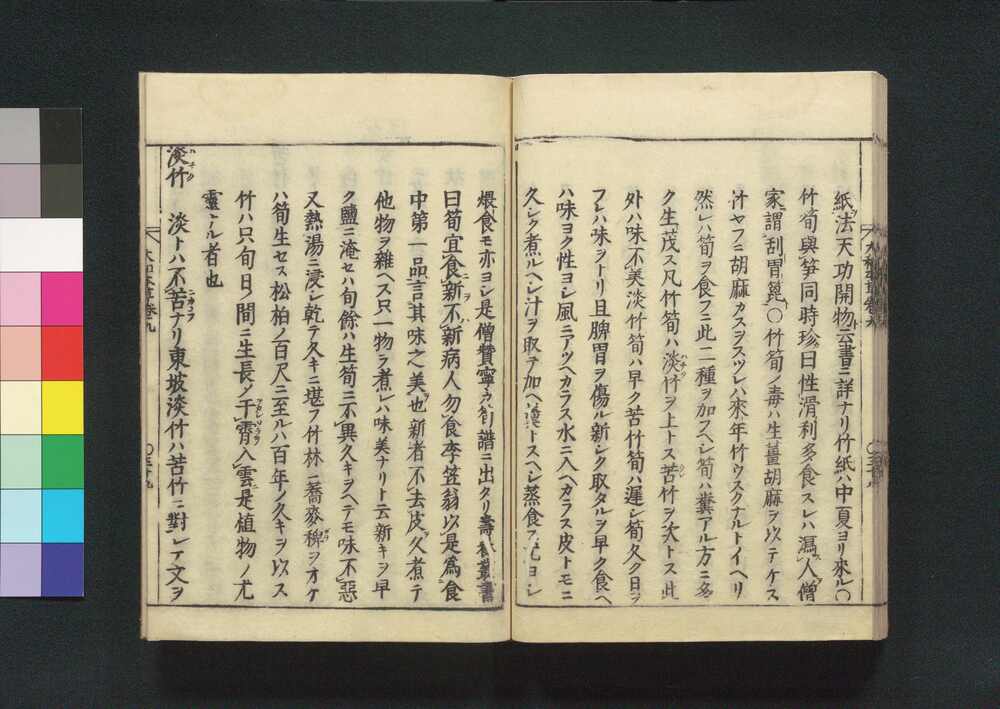 紙ノ法天功開物云書ニ詳ナリ竹紙ハ中夏ヨリ來ル〇
竹筍與笋同時珍曰性滑利多食スレハ瀉人僧
家謂刮胃篦〇竹筍ノ毒ハ生薑胡麻ヲ以テケス
汁ヤフニ胡麻カスヲスツレハ來年竹ウスクナルトイヘリ
然レハ筍ヲ食フニ此二種ヲ加フヘシ筍ハ糞アル方ニ多
ク生茂ス凡竹筍ハ淡竹ヲ上トス苦竹ヲ次トス此
外ハ味不美淡竹筍ハ早ク苦竹筍ハ遲シ筍久日ヲ
フレハ味ヲトリ且脾胃ヲ傷ル新シク取タルヲ早ク食ヘ
ハ味ヨク性ヨシ風ニアツヘカラス水ニ入ヘカラス皮トモニ
久シク煮ルヘシ汁ヲ取テ加ヘ トスヘシ蒸食フ尤ヨシ
煨食モ亦ヨシ是僧贊寧カ筍譜ニ出タリ壽 叢書
曰筍宜食新不新病人勿食李笠翁以是爲食
中第一品言其味之美也新者不去皮久煮テ
他物ヲ雜ヘス只一物ヲ煮レハ味美ナリト云新キヲ早
ク鹽ニ淹セハ旬餘ハ生筍ニ不異久キヲヘテモ味不惡
又熱湯ニ浸シ乾テ久キニ堪フ竹林ニ蕎麥稗ヲオケ
ハ筍生セス松柏ノ百尺ニ至ルハ百年ノ久キヲ以ス
竹ハ只旬日ノ間ニ生長ノ干霄入雲是植物ノ尤
靈ナル者也
淡竹 淡トハ不苦ナリ東坡淡竹ハ苦竹ニ對シテ文ヲ
大和本草卷九